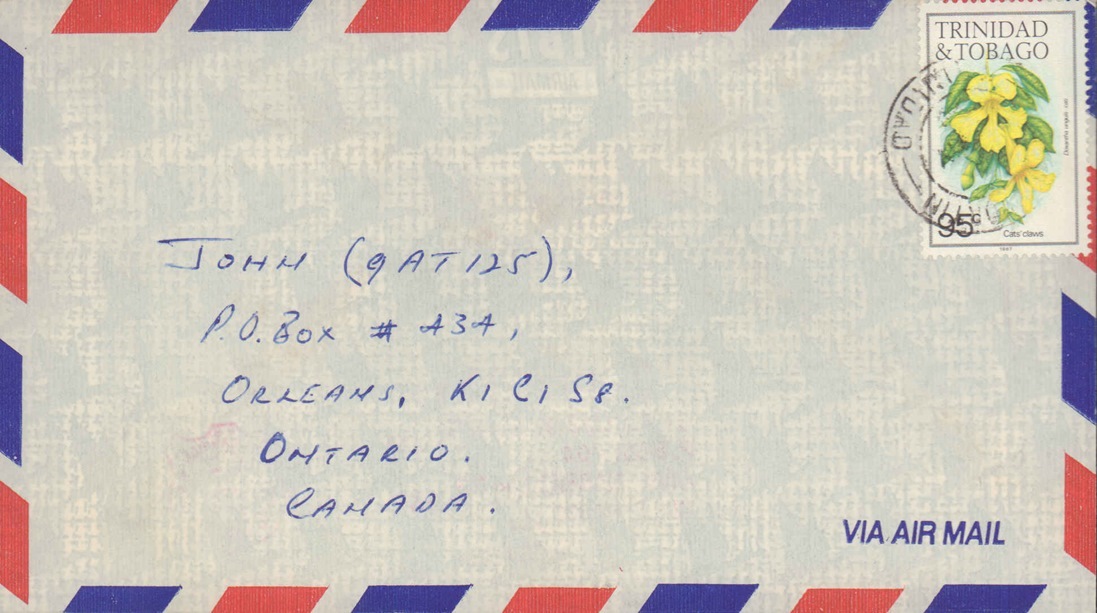 TRINIDAD
& TOBAGO
95c
Cats' claws
1987
JOHN (9AT125),
P.O. BOX # A3A,
ORLEANS, K1C1S8.
ONTARIO.
CANADA.
VIA AIR MAIL